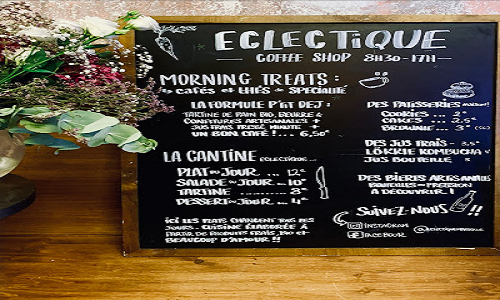 ECLECTiQUE
COFFEE SHOP 8H30-17H
MORNING TREATS :
cafés et thés de SPÉCIALITÉ
LA FORMULE P'tit DEJ :
TARTINE DE PAIN BIO, BEURRE &
CONFITURES ARTISANALES +
JUS FRAIS PRESSÉ MINUTE +
UN BON CAFÉ ! ... 6,50€
LA CANTINE ECLECTIQUE ...
PLAT DU JOUR ... 12€
SALADE DU JOUR ... 10€
TARTINE ... 8€
DESSERT DU JOUR ... 4€
ICI LES PLATS CHANGENT TOUS LES
JOURS. CUISINE ÉLABORÉE À
PARTIR DE PRODUITS FRAIS, BIO ET
BEAUCOUP D'AMOUR !!
DES PATISSERIES MAISON !
COOKIES ... 2€
CAKES ... 2,5€
BROWNIE ... 3€
DES JUS FRAIS - 3,5€
LÖKKIE KOMBUCHA
JUS BOUTEILLE
DES BIÈRES ARTISANALES
À DÉCOUVRIR !
SUiVEZ-NOUS
INSTAGRAM
FACEBOOK